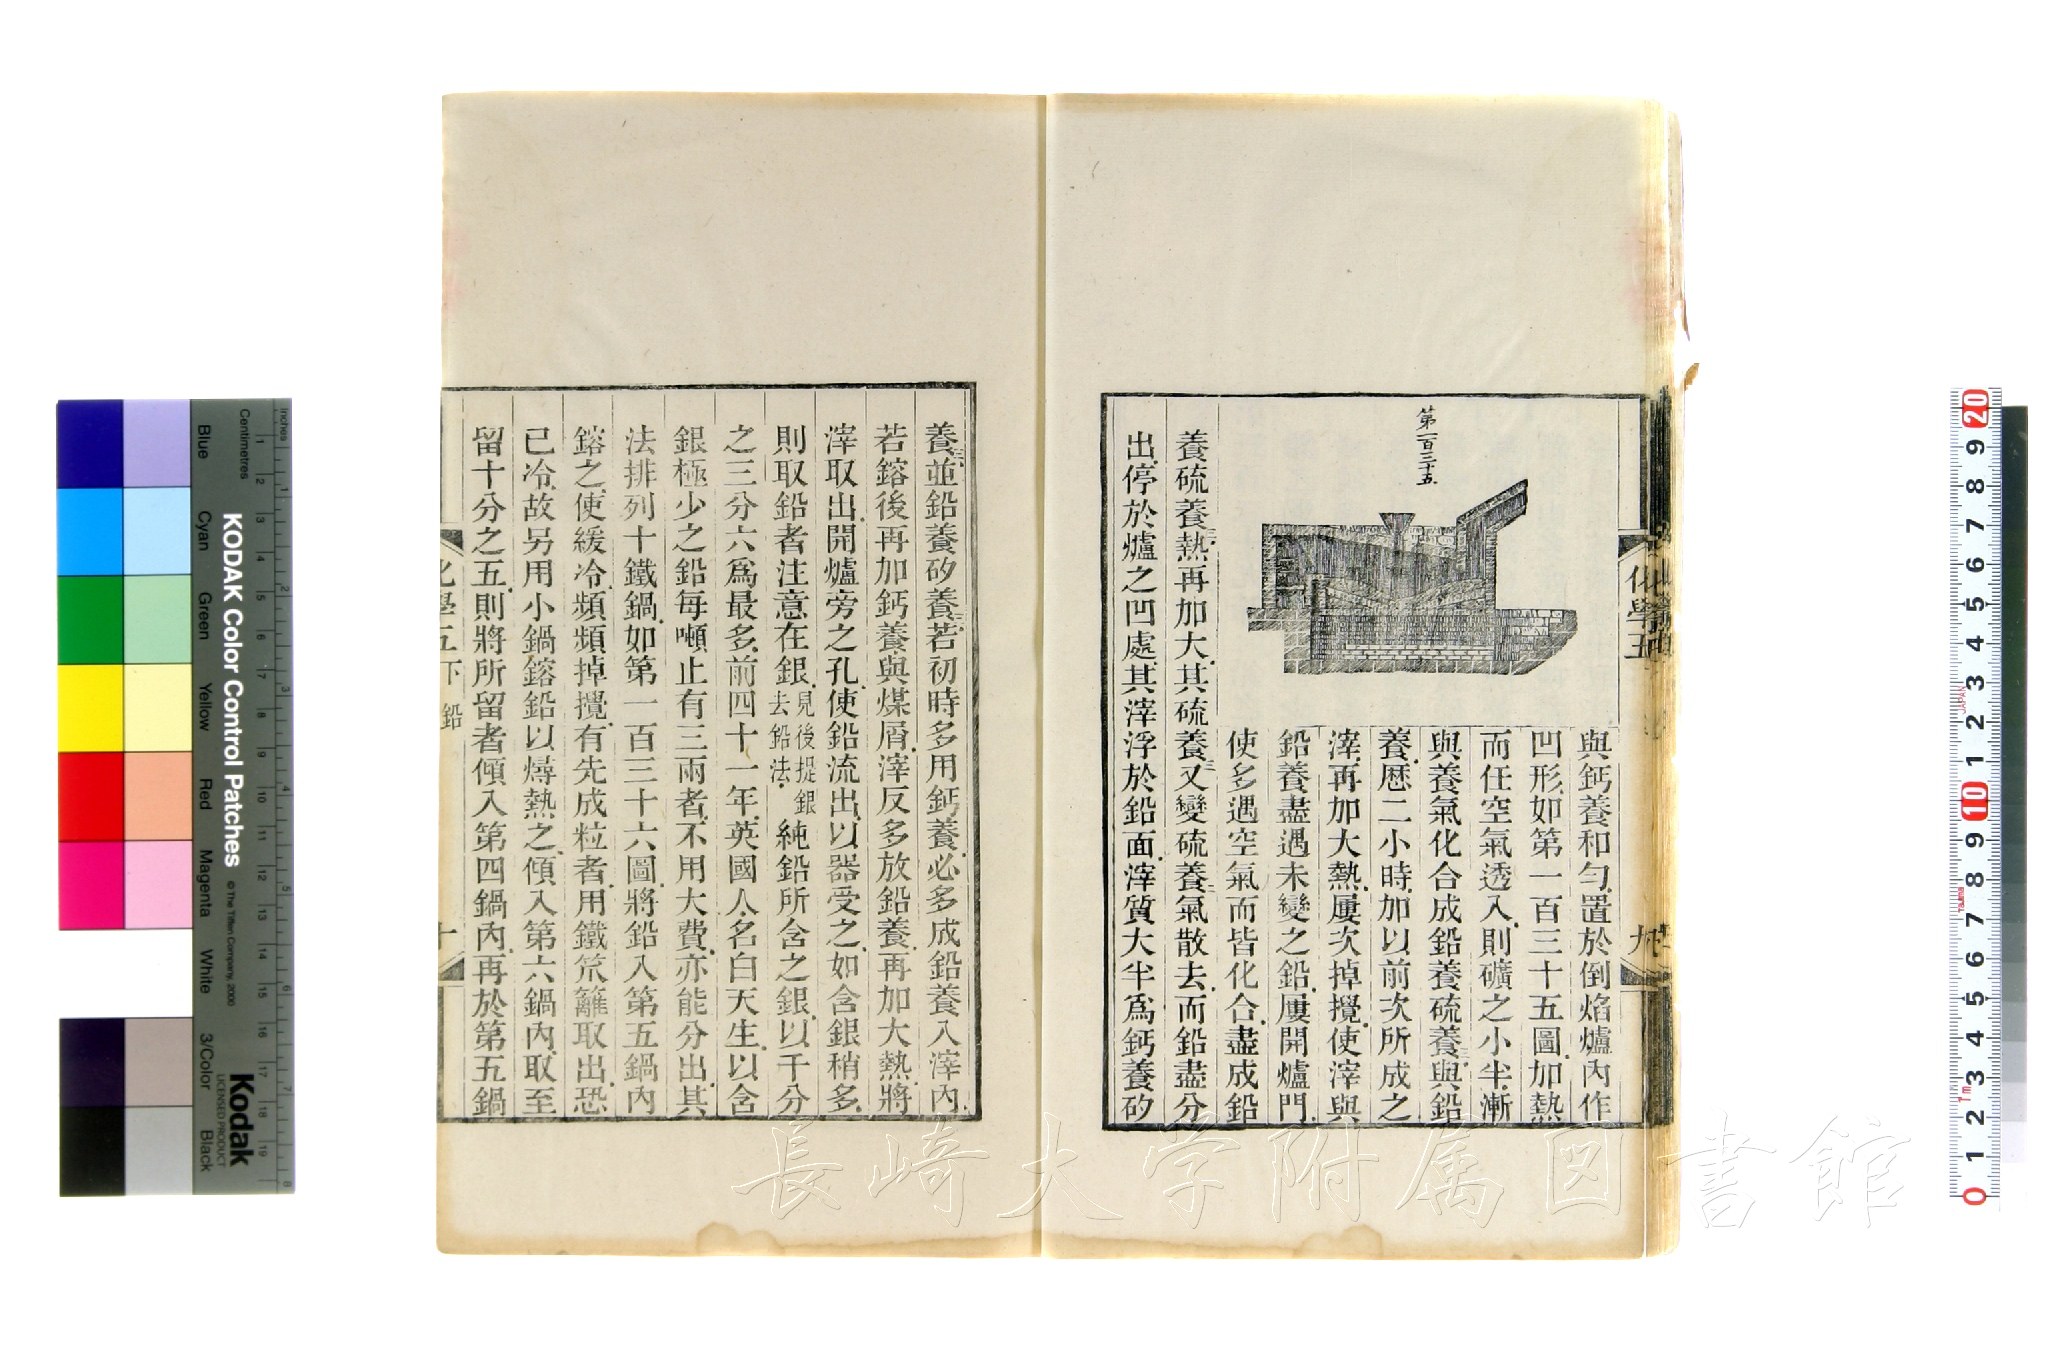 第一百三十五
與鈣養和勻置於倒焰爐內作
凹形如第一百三十五圖加熱
而任空氣透入則礦之小半漸
與養氣化合成鉛養硫養三與鉛
養歷二小時加以前次所成之
滓再加大熱屢次掉攪使滓與
鉛養盡遇未變之鉛屢開爐門
使多遇空氣而皆化合盡成鉛
養硫養三熱再加大其硫養三又變硫養二氣散去而鉛盡分
出停於爐之凹處其滓浮於鉛面滓質大半為鈣養矽
化學五
九
養三並鉛養矽養三若初時多用鈣養必多成鉛養入滓內
若鎔後再加鈣養與煤屑滓反多放鉛養再加大熱將
滓取出開爐旁之孔使鉛流出以器受之如含銀稍多
則取鉛者注意在銀見後提銀去鉛法純鉛所含之銀以千分
之三分六為最多前四十一年英國人名白天生以含
銀極少之鉛每噸止有三兩者不用大費亦能分出其
法排列十鐵鍋如第一百三十六圖將鉛入第五鍋內
鎔之使緩冷頻頻掉攪有先成粒者用鐵笊籬取出恐
已冷故另用小鍋鎔鉛以燖熱之傾入第六鍋內取至
留十分之五則將所留者傾入第四鍋內再於第五鍋
化學五下 鉛
十
長崎大学附属図書館
KODAK Color Control Patches
© The Tiffen Company, 2000
Kodak
LICENSED PRODUCT
Blue Cyan Green Yellow Red Magenta White 3/Color Black
Centimetres
Inches
1 2 3 4 5 6 7 8 9 10 11 12 13 14 15 16 17 18 19
1 2 3 4 5 6 7 8
0 1 2 3 4 5 6 7 8 9 10 1 2 3 4 5 6 7 8 9 20
JAPAN
Tajima
1m